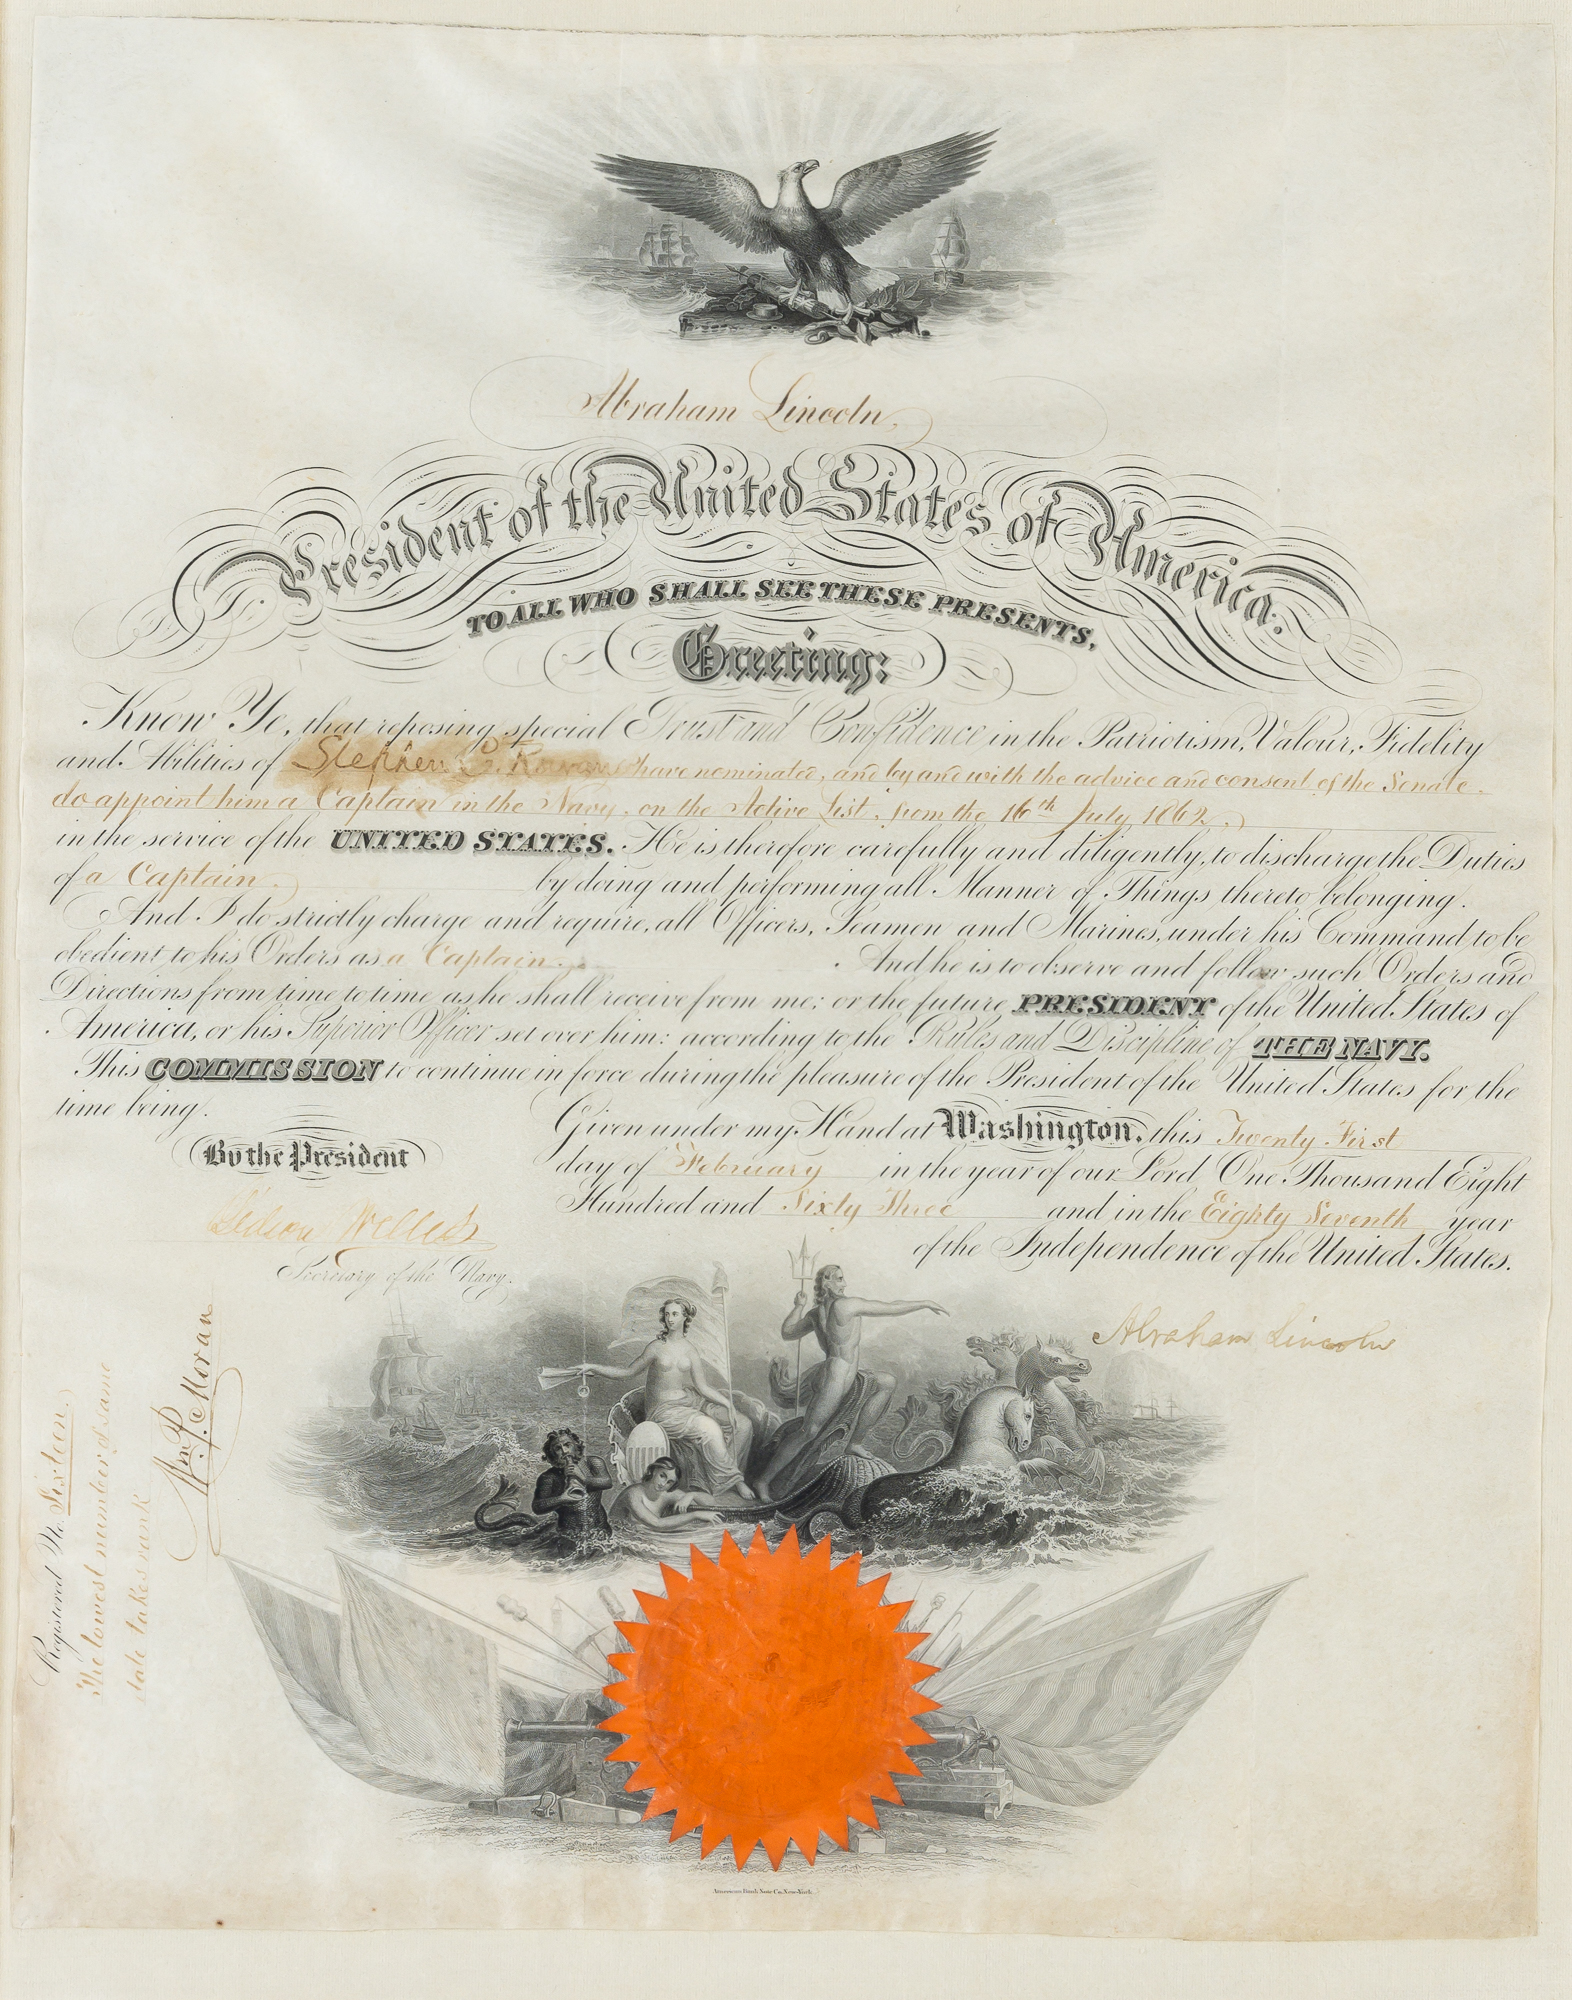 Abraham Lincoln,
President of the United States of America.
TO ALL WHO SHALL SEE THESE PRESENTS,
Greeting:
Know Ye, that reposing special Trust and Confidence in the Patriotism, Valour, Fidelity
and Abilities of Stephen C. Rowan have nominated, and by and with the advice and consent of the Senate,
do appoint him a Captain in the Navy, on the Active List, from the 16th July 1862,
in the service of the UNITED STATES. He is therefore carefully and diligently, to discharge the Duties
of a Captain, by doing and performing all Manner of Things thereto belonging.
And I do strictly charge and require, all Officers, Seamen and Marines, under his Command to be
obedient to his Orders as a Captain. And he is to observe and follow such Orders and
Directions from time to time as he shall receive from me; or the future PRESIDENT of the United States of
America, or his Superior Officer set over him: according to the Rules and Discipline of THE NAVY.
This COMMISSION to continue in force during the pleasure of the President of the United States for the
time being.
Given under my Hand at Washington, this Twenty First
day of February in the year of our Lord One Thousand Eight
Hundred and Sixty Three and in the Eighty Seventh year
of the Independence of the United States.
By the President
Gideon Welles
Secretary of the Navy.
Abraham Lincoln
Registered No. Sixteen.
The lowest number of same
date takes rank
Wm. P. Moran
American Bank Note Co. New-York.